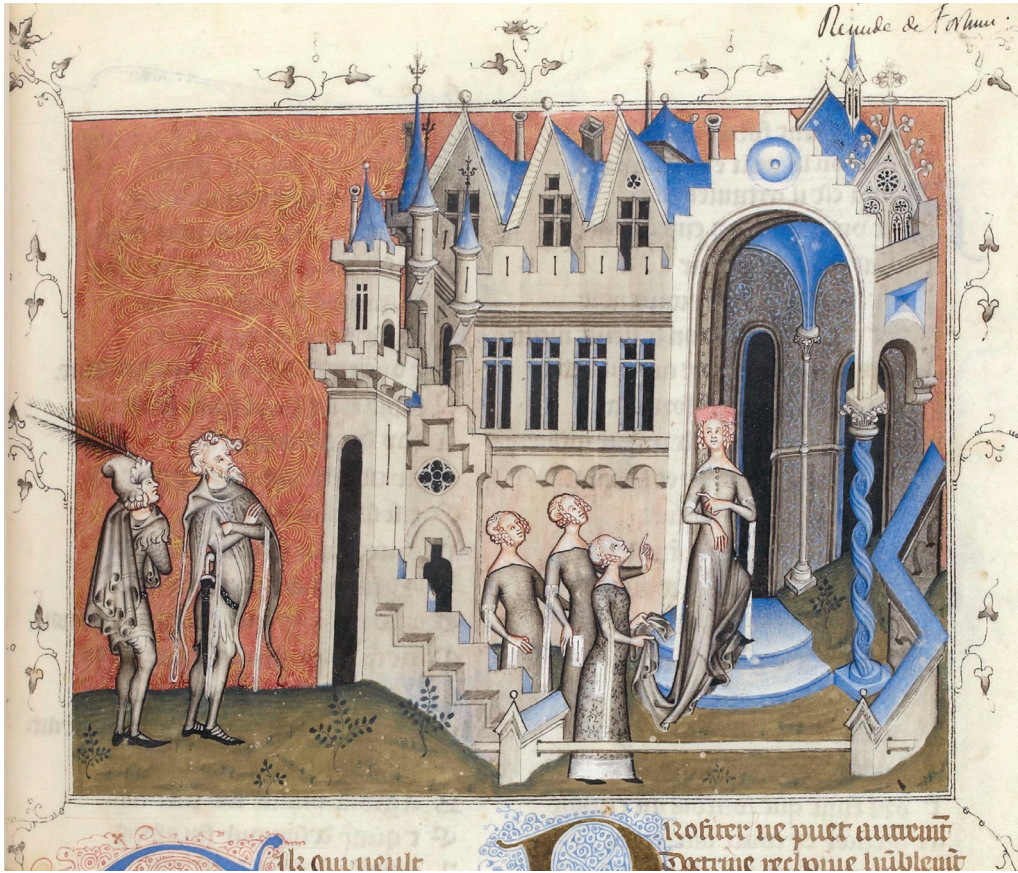 Remede de Fortune.
Cilz qui veult
Profiter ne puet autrement
Doctrine recloiue hūblem̄t